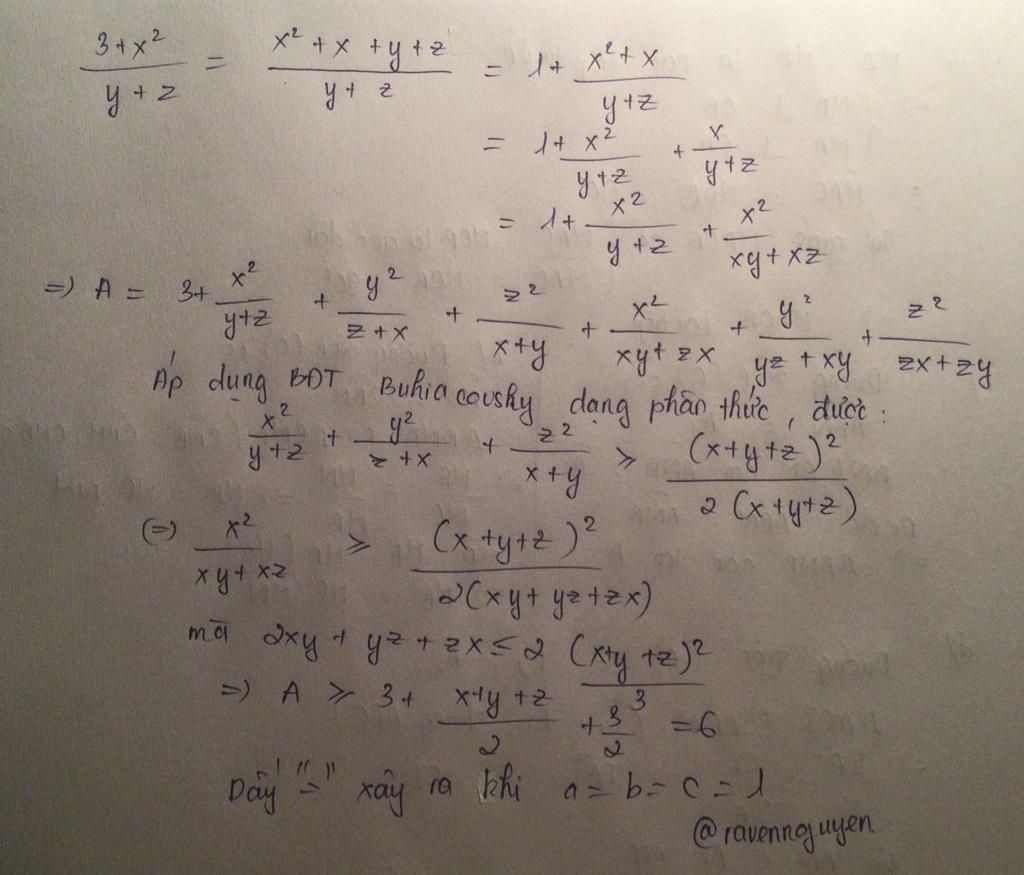 (3+x²)/(y+z) = (x²+x+y+z)/(y+z) = 1+(x²+x)/(y+z)
= 1+x²/(y+z) + x/(y+z)
= 1+x²/(y+z) + x²/(xy+xz)
=) A = 3+x²/(y+z) + y²/(z+x) + z²/(x+y) + x²/(xy+zx) + y²/(yz+xy) + z²/(zx+zy)
Áp dụng BĐT Buhiacovsky dạng phân thức, được:
x²/(y+z) + y²/(z+x) + z²/(x+y) ≥ (x+y+z)²/2(x+y+z)
(=) x²/(xy+xz) ≥ (x+y+z)²/2(xy+yz+zx)
mà 2xy+yz+zx ≤ 2 (x+y+z)²/3
=) A ≥ 3+(x+y+z)/2 + 3/2 = 6
Dấy "=" xảy ra khi a=b=c=1
@ravennguyen